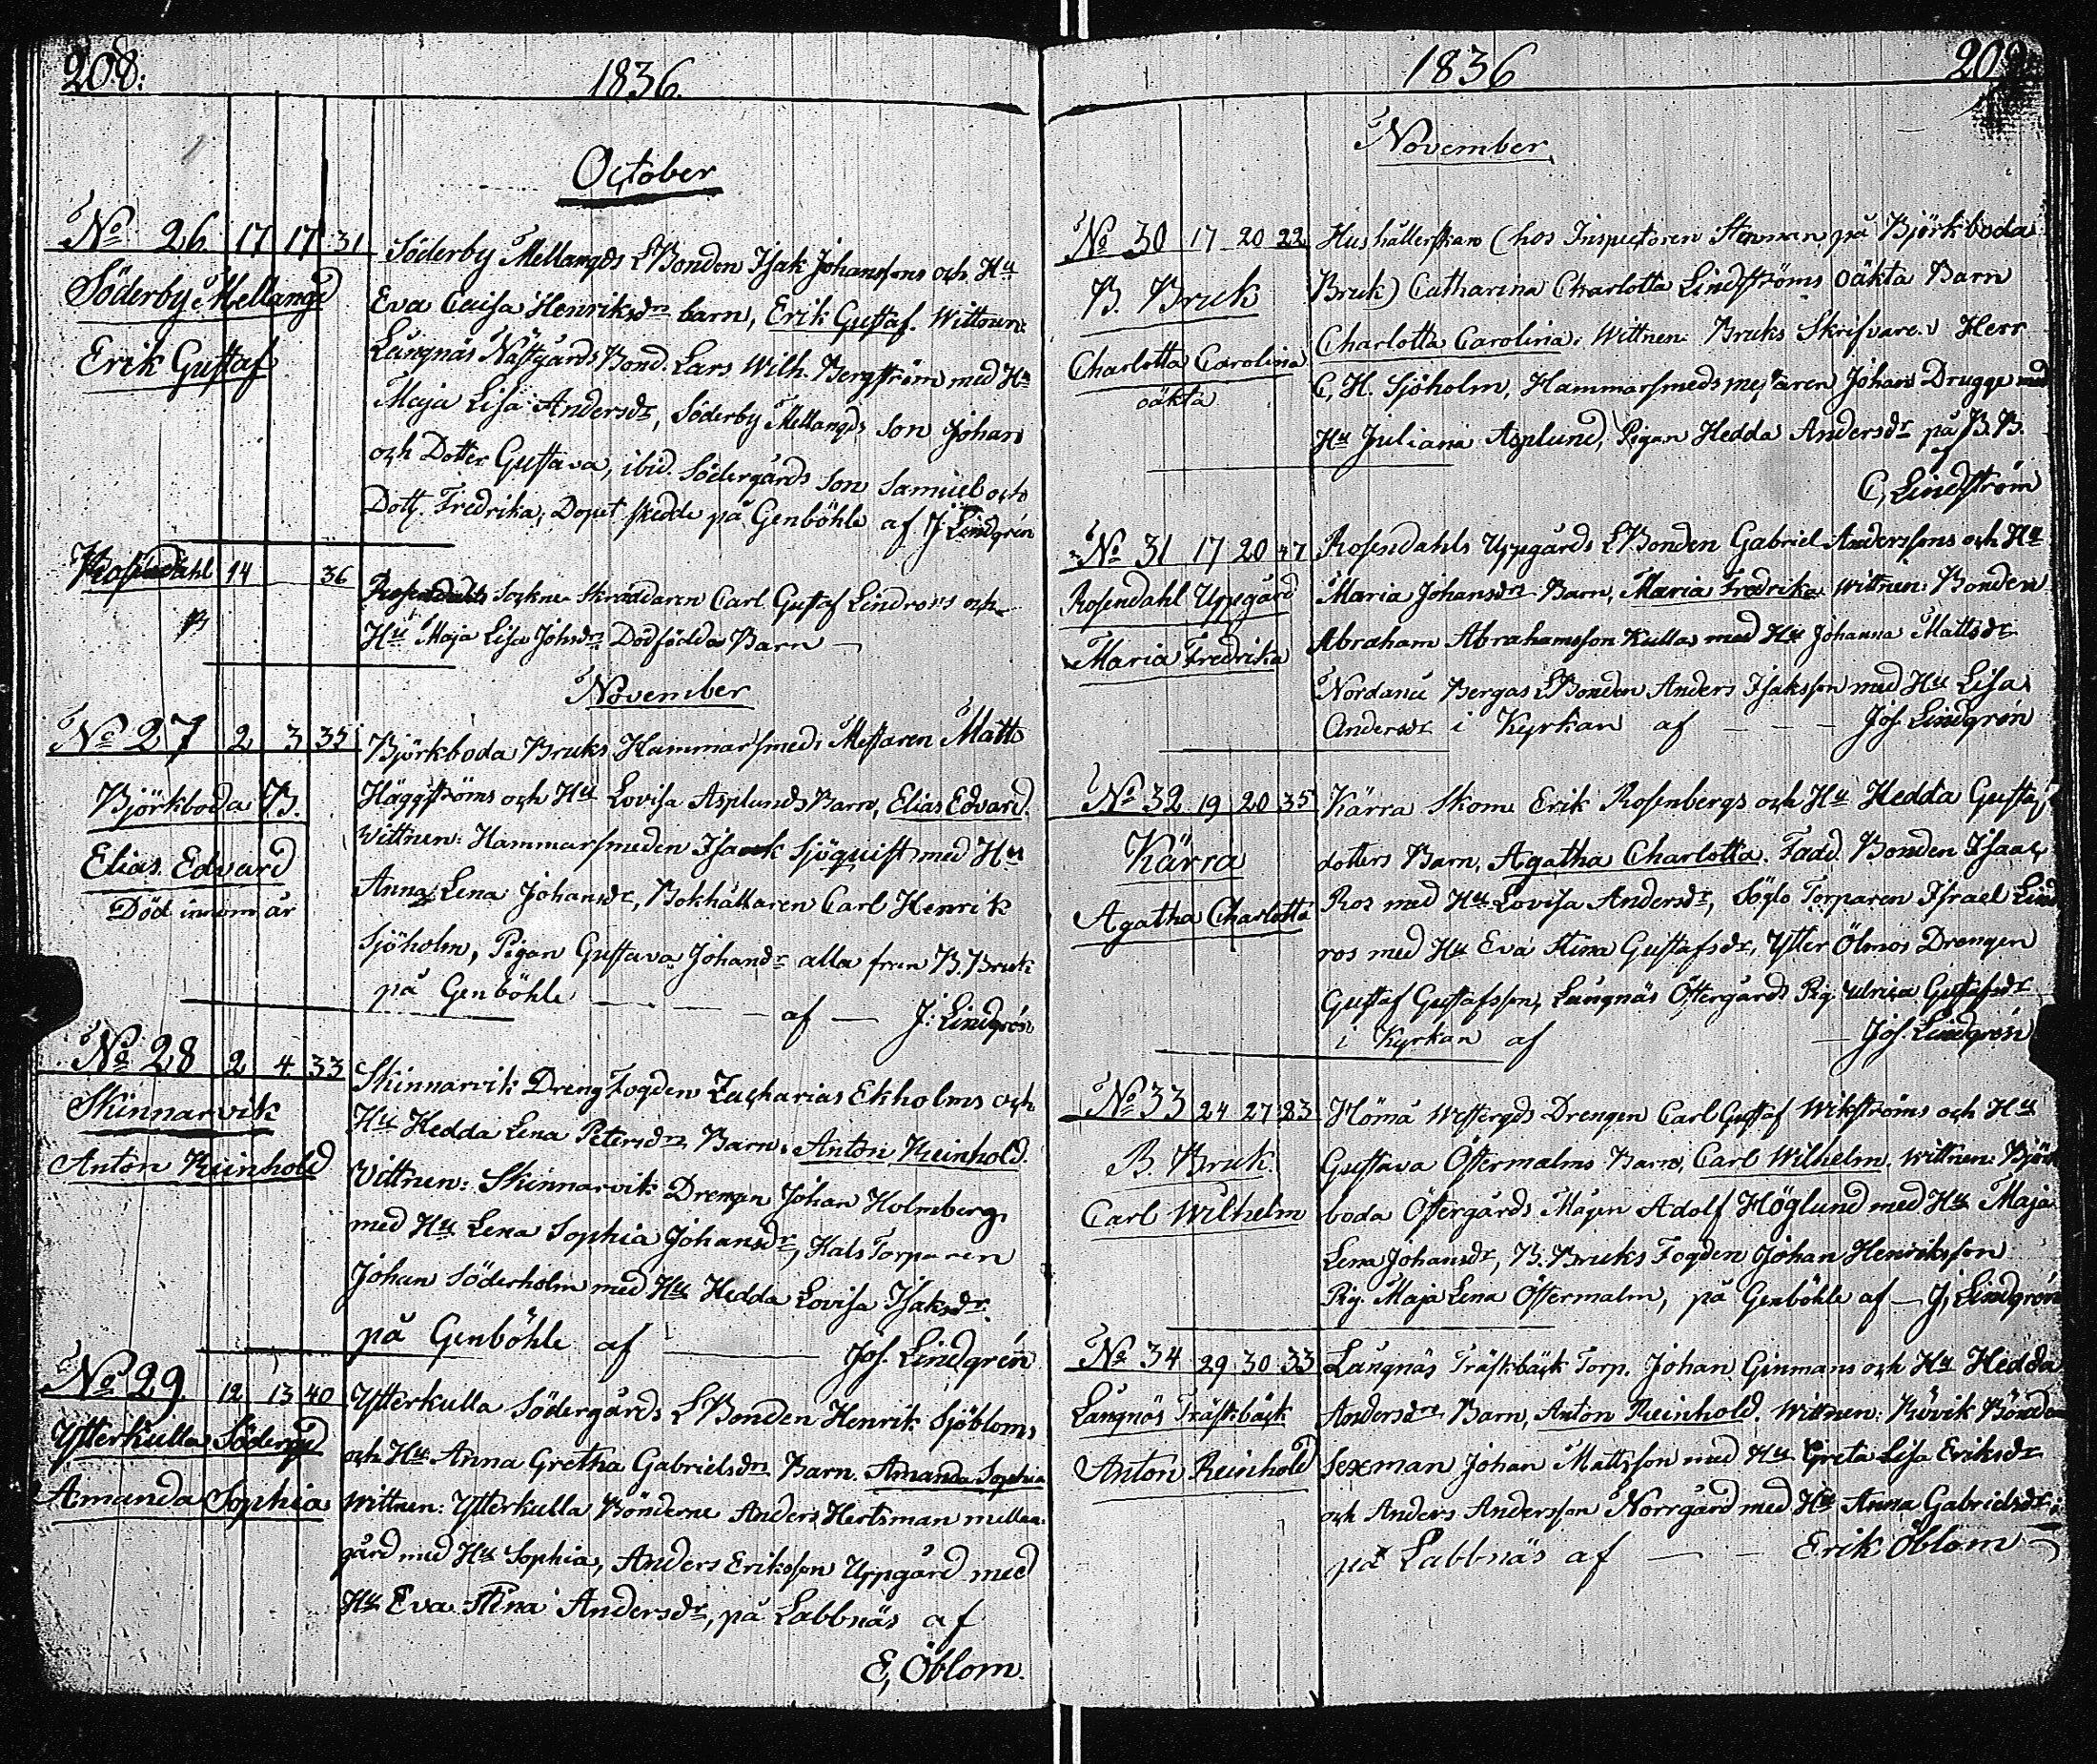 208.
1836.
October
No 26 17 17 31
Söderby Mellangd
Erik Gustaf
Söderby Mellangds LBonden Isak Johanssons och Hu
Eva Caisa Henriksdrs barn, Erik Gustaf. Wittnen:
Långnäs Nästgårds Bond. Lars Wilh. Bergström med Hu
Maja Lisa Andersdr, Söderby Mellangds Son Johan
och Dotter Gustava, ibid. Södergårds Son Samuel och
Dott. Fredrika, Dopet skedde på Genböhle af J: Lindgrén
Rosendahl 14 36
Rosendahls Sockne Skräddaren Carl Gustaf Lindroos och
Hu Maja Lisa Johsdrs Dödfödda Barn —
November
No 27 2 3 35
Björkboda B.
Elias Edvard
Död innom år
Björkboda Bruks Hammarsmeds Mästaren Matts
Häggströms och Hu Lovisa Asplunds Barn, Elias Edvard.
Wittnen: Hammarsmeden Isaak Sjöquist med Hu
Anna Lena Johansdr, Bokhållaren Carl Henrik
Sjöholm, Pigan Gustava Johandr alla från B. Bruk
på Genböhle — — — af — J: Lindgrén
No 28 2 4 33
Skinnarvik
Anton Reinhold
Skinnarvik Dreng Fogden Zacharias Ekholms och
Hu Hedda Lena Petersdrs Barn, Anton Reinhold.
Vittnen: Skinnarvik Drengen Johan Holmberg
med Hu Lena Sophia Johansdr, Hals Torparen
Johan Söderholm med Hu Hedda Lovisa Isaksdr
på Genböhle af — Jos. Lindgrén
No 29 12 13 40
Ytterkulla Södergd
Amanda Sophia
Ytterkulla Södergårds LBonden Henrik Sjöbloms
och Hu Anna Gretha Gabrielsdrs Barn. Amanda Sophia
Wittnen: Ytterkulla Bönderne Anders Hertsman mellan
gård med Hu Sophia, Anders Eriksson Uppgård med
Hu Eva Stina Andersdr, på Labbnäs af
E, Öblom.
1836
209
November
No 30 17 20 22
B. Bruk
Charlotta Carolina
oäkta
Hushållerskan (hos Inspectoren Stenman på Björkboda
Bruk) Catharina Charlotta Lindströms oäkta Barn
Charlotta Carolina. Wittnen: Bruks Skrifvaren Herr
C, H. Sjöholm, Hammarsmedsmestaren Johan Drugge med
Hu Juliana Asplund, Pigan Hedda Andersdr på B. B.
af
C, Lindström
No 31 17 20 47
Rosendahl Uppgård
Maria Fredrika
Rosendahls Uppgårds LBonden Gabriel Anderssons och Hu
Maria Johansdrs Barn, Maria Fredrika Wittnen: Bonden
Abraham Abrahamsson Kulla med Hu Johanna Mattsdr
Nordanå Bergas LBonden Anders Isaksson med Hu Lisa
Andersdr i Kyrkan af — — Jos. Lindgrén
No 32 19 20 35
Kärra
Agatha Charlotta
Kärra Skom. Erik Rosenbergs och Hu Hedda Gustaf
dotters Barn, Agatha Charlotta. Fadd. Bonden Isaac
Ros med Hu Lovisa Andersdr, Söglö Torparen Israel Lind
ros med Hu Eva Stina Gustafsdr, Ytter Ölmos Drengen
Gustaf Gustafsson, Långnäs Östergårds Pig. Ulrica Gustafsdr
i Kyrkan af — Jos. Lindgrén
No 33 24 27 23
B. Bruk
Carl Wilhelm
Möma Westergds Drengen Carl Gustaf Wikströms och Hu
Gustava Östermalms Barn, Carl Wilhelm. Wittnen: Björk
boda Östergårds Mågen Adolf Höglund med Hu Maja
Lena Johansdr, B. Bruks Fogden Johan Henriksson
Pig. Maja Lena Östermalm, på Genböhle af — J, Lindgrén
No 34 29 30 33
Långnäs Träskbäck
Anton Reinhold
Långnäs Träskbäck Torp. Johan Ginmans och Hu Hedda
Andersdrs Barn, Anton Reinhold. Wittnen: Rövik Bönder
Sexman Johan Mattsson med Hu Greta Lisa Eriksdr
och Anders Andersson Norrgård med Hu Anna Gabrielsdr
på Labbnäs af — — Erik Öblom —